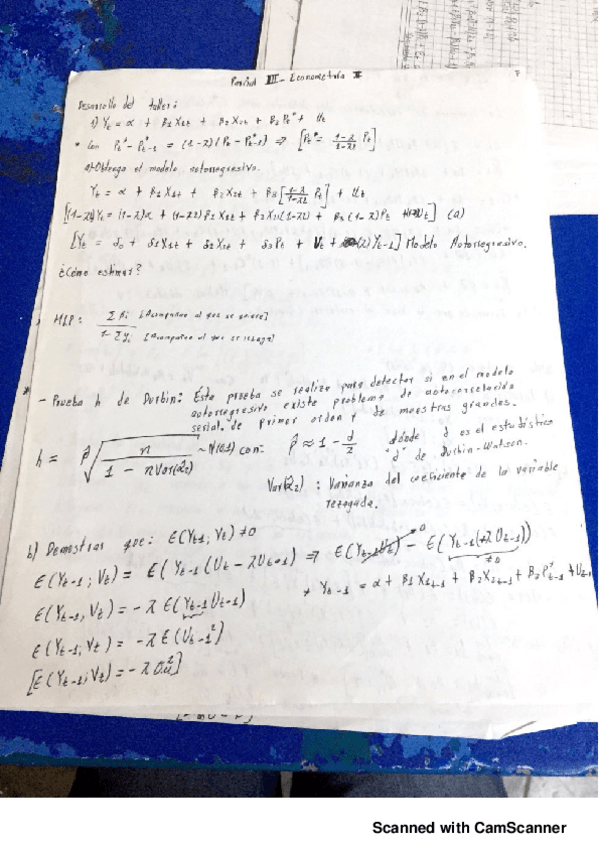 Parcial III - Econometría II
Desarrollo del taller:
1) Yt = α + β1 X1t + β2 X2t + β3 Pt* + Ut
* Con Pt* - P*t-1 = (1-λ)(Pt - P*t-1) ⇒ [Pt* = (1-λ)/(1-λL) Pt]
a) Obtenga el modelo autorregresivo.
Yt = α + β1 X1t + β2 X2t + β3 [(1-λ)/(1-λL) Pt] + Ut
[Yt = δ0 + δ1 X1t + δ2 X2t + δ3 Pt + Vt + (λ) Yt-1] Modelo Autorregresivo.
¿Cómo estimar?
MLP: Σ βi [Acompañan al que se quiere]
1 - Σ γi [Acompañan al que se rezaga]
- Prueba h de Durbin: Esta prueba se realiza para detectar si en el modelo
autorregresivo existe problema de autocorrelación
serial de primer orden y de muestras grandes.
h = ρ̂ √(n / (1 - n Var(α̂2))) ~ N(0,1) con: ρ̂ ≈ 1 - d/2 dónde d es el estadístico
"d" de Durbin-Watson.
Var(α̂2) : Varianza del coeficiente de la variable
rezagada.
b) Demostrar que: E(Yt-1; Vt) ≠ 0
E(Yt-1; Vt) = E(Yt-1 (Ut - λUt-1)) ⇒ E(Yt-1 Ut) → 0 - E(Yt-1 (+λUt-1)) ≠ 0
E(Yt-1, Vt) = -λ E(Yt-1 Ut-1) * Yt-1 = α + β1 X1t-1 + β2 X2t-1 + β3 P*t-1 + Ut-1
E(Yt-1; Vt) = -λ E(Ut-1²)
[E(Yt-1; Vt) = -λ σu²]
Scanned with CamScanner